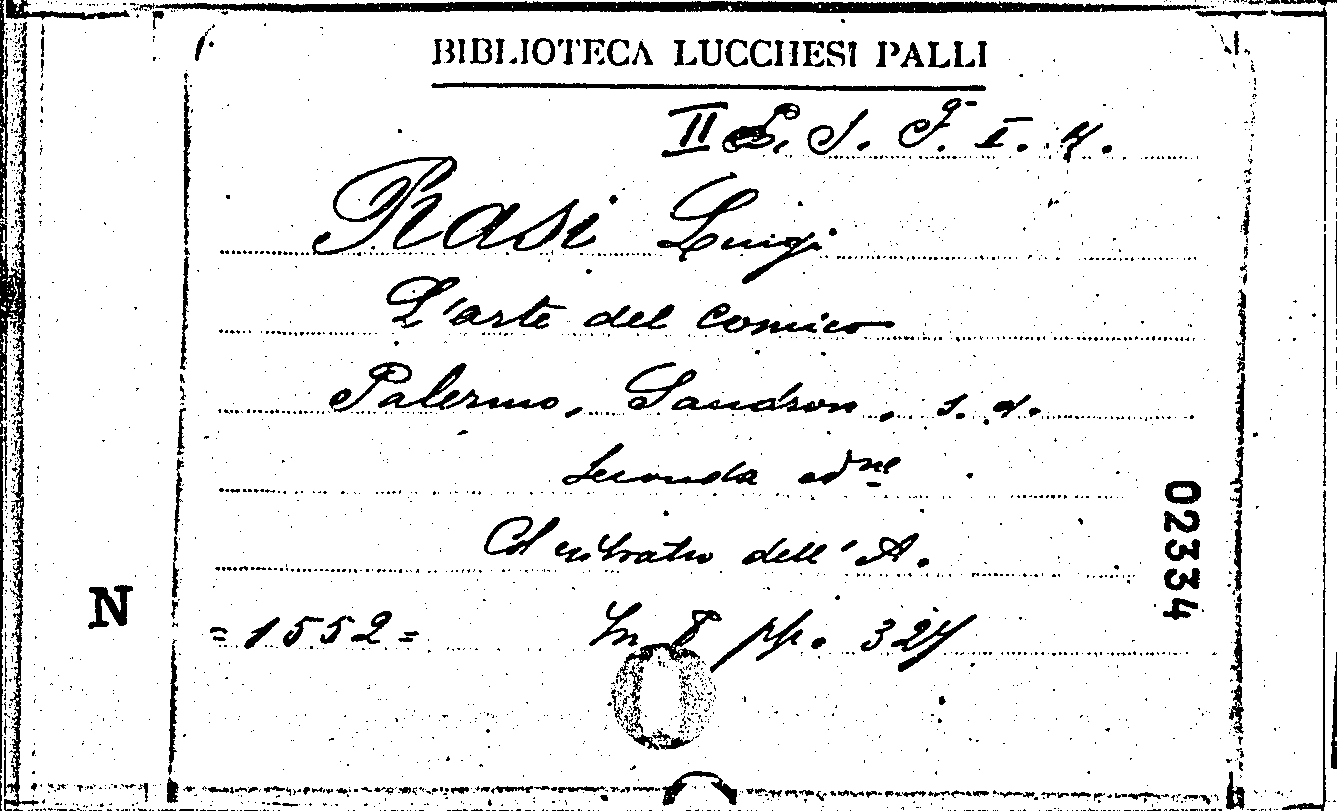 BIBLIOTECA LUCCHESI PALLI
II S. F. I. 4.
Rasi Luigi
L'arte del comico
Palermo, Sandron, s. d.
Seconda ed.ne
Col ritratto dell'A.
=1552= In 8 pp. 327
02334
N